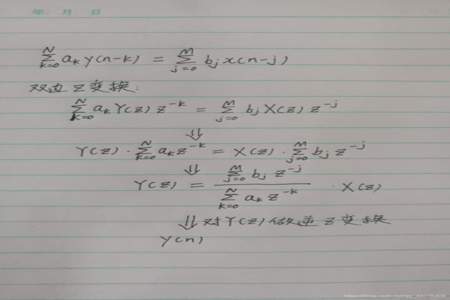 ∑_{k=0}^{N} a_k y(n-k) = ∑_{j=0}^{M} b_j x(n-j)
双边Z变换:
∑_{k=0}^{N} a_k Y(z) z^{-k} = ∑_{j=0}^{M} b_j X(z) z^{-j}
⇓
Y(z) · ∑_{k=0}^{N} a_k z^{-k} = X(z) · ∑_{j=0}^{M} b_j z^{-j}
⇓
Y(z) = \frac{∑_{j=0}^{M} b_j z^{-j}}{∑_{k=0}^{N} a_k z^{-k}} · X(z)
⇓ 对Y(z)做逆Z变换
y(n)